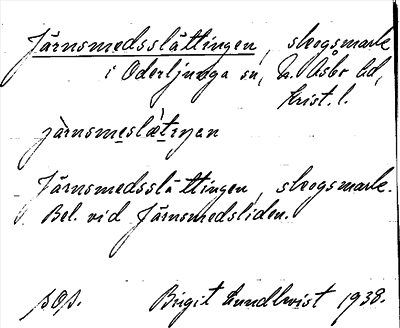 Järnsmedsslättingen, skogsmark
i Oderljunga sn, N. Åsbo hd,
Krist. l.
jàrnsmeslæ̀tiŋan
Järnsmedsslättingen, skogsmark.
Bel. vid Järnsmedsliden.
sos. Birgit Lundkvist 1938.